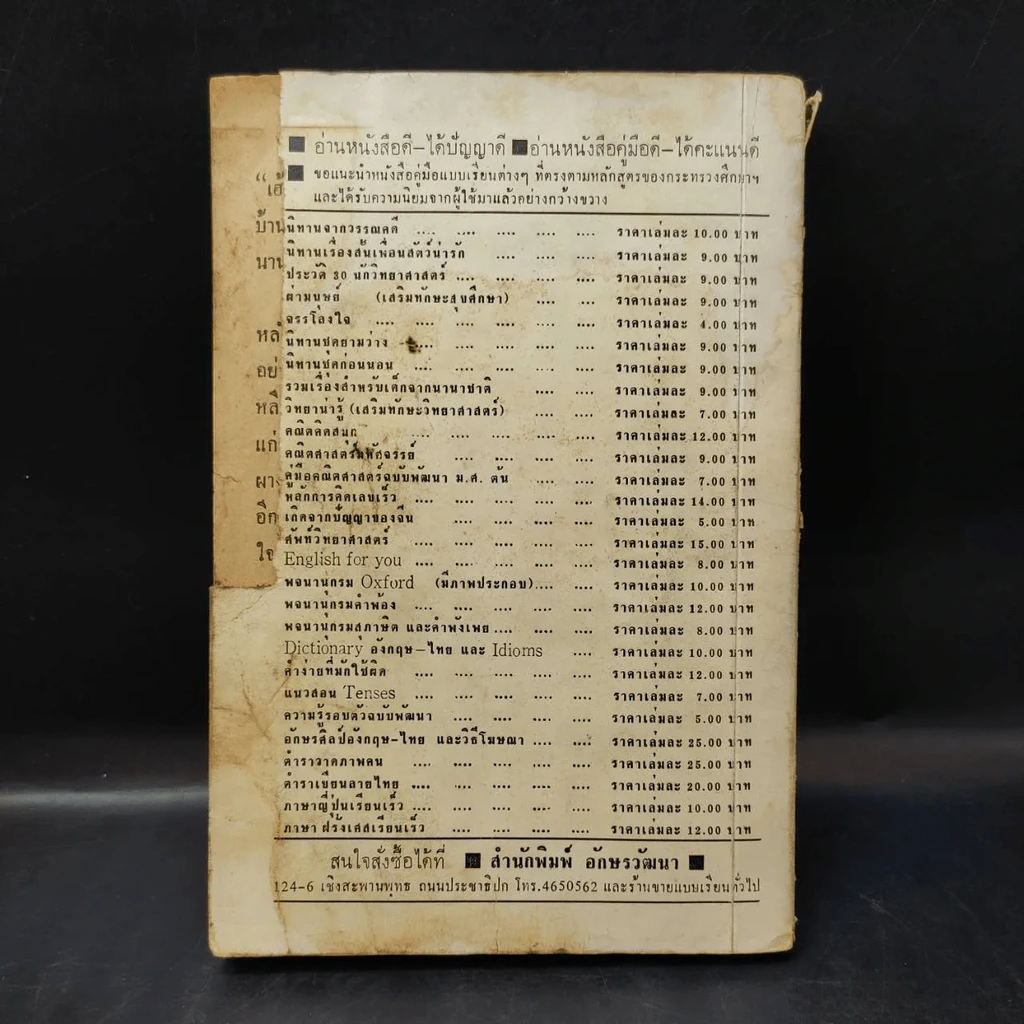 ■ อ่านหนังสือดี-ได้ปัญญาดี ■ อ่านหนังสือคู่มือดี-ได้คะแนนดี
■ ขอแนะนำหนังสือคู่มือแบบเรียนต่างๆ ที่ตรงตามหลักสูตรของกระทรวงศึกษาฯ
และได้รับความนิยมจากผู้ใช้มาแล้วอย่างกว้างขวาง
“เฮ้
บ้าน
นาน
หลั
อย่
หลื
แก่
ผาง
อีก
ใจ
นิทานจากวรรณคดี .... .... .... .... .... ราคาเล่มละ 10.00 บาท
นิทานเรื่องสั้นเพื่อนสัตว์น่ารัก .... .... .... ราคาเล่มละ 9.00 บาท
ประวัติ 30 นักวิทยาศาสตร์ .... .... .... .... ราคาเล่มละ 9.00 บาท
ผ่ามนุษย์ (เสริมทักษะสุขศึกษา) .... .... ราคาเล่มละ 9.00 บาท
จรรโลงใจ .... .... .... .... .... .... ราคาเล่มละ 4.00 บาท
นิทานชุดยามว่าง .... .... .... .... .... ราคาเล่มละ 9.00 บาท
นิทานชุดก่อนนอน .... .... .... .... .... ราคาเล่มละ 9.00 บาท
รวมเรื่องสำหรับเด็กจากนานาชาติ .... .... ราคาเล่มละ 9.00 บาท
วิทยาน่ารู้ (เสริมทักษะวิทยาศาสตร์) .... .... ราคาเล่มละ 7.00 บาท
คณิตคิดสนุก .... .... .... .... .... ราคาเล่มละ 12.00 บาท
คณิตศาสตร์มหัศจรรย์ .... .... .... .... ราคาเล่มละ 9.00 บาท
คู่มือคณิตศาสตร์ฉบับพัฒนา ม.ศ. ต้น .... .... ราคาเล่มละ 7.00 บาท
หลักการคิดเลขเร็ว .... .... .... .... .... ราคาเล่มละ 14.00 บาท
เกิดจากปัญญาของจีน .... .... .... .... ราคาเล่มละ 5.00 บาท
ศัพท์วิทยาศาสตร์ .... .... .... .... .... ราคาเล่มละ 15.00 บาท
English for you .... .... .... .... .... ราคาเล่มละ 8.00 บาท
พจนานุกรม Oxford (มีภาพประกอบ).... .... ราคาเล่มละ 10.00 บาท
พจนานุกรมคำพ้อง .... .... .... .... .... ราคาเล่มละ 12.00 บาท
พจนานุกรมสุภาษิต และคำพังเพย .... .... .... ราคาเล่มละ 8.00 บาท
Dictionary อังกฤษ-ไทย และ Idioms .... ราคาเล่มละ 10.00 บาท
คำง่ายที่มักใช้ผิด .... .... .... .... .... ราคาเล่มละ 12.00 บาท
แนวสอน Tenses .... .... .... .... .... ราคาเล่มละ 7.00 บาท
ความรู้รอบตัวฉบับพัฒนา .... .... .... .... ราคาเล่มละ 5.00 บาท
อักษรศิลป์อังกฤษ-ไทย และวิธีโฆษณา .... .... ราคาเล่มละ 25.00 บาท
ตำราวาดภาพคน .... .... .... .... .... ราคาเล่มละ 25.00 บาท
ตำราเขียนลายไทย .... .... .... .... .... ราคาเล่มละ 20.00 บาท
ภาษาญี่ปุ่นเรียนเร็ว .... .... .... .... .... ราคาเล่มละ 10.00 บาท
ภาษา ฝรั่งเศสเรียนเร็ว .... .... .... .... ราคาเล่มละ 12.00 บาท
สนใจสั่งซื้อได้ที่ ■ สำนักพิมพ์ อักษรวัฒนา ■
124-6 เชิงสะพานพุทธ ถนนประชาธิปก โทร.4650562 และร้านขายแบบเรียนทั่วไป